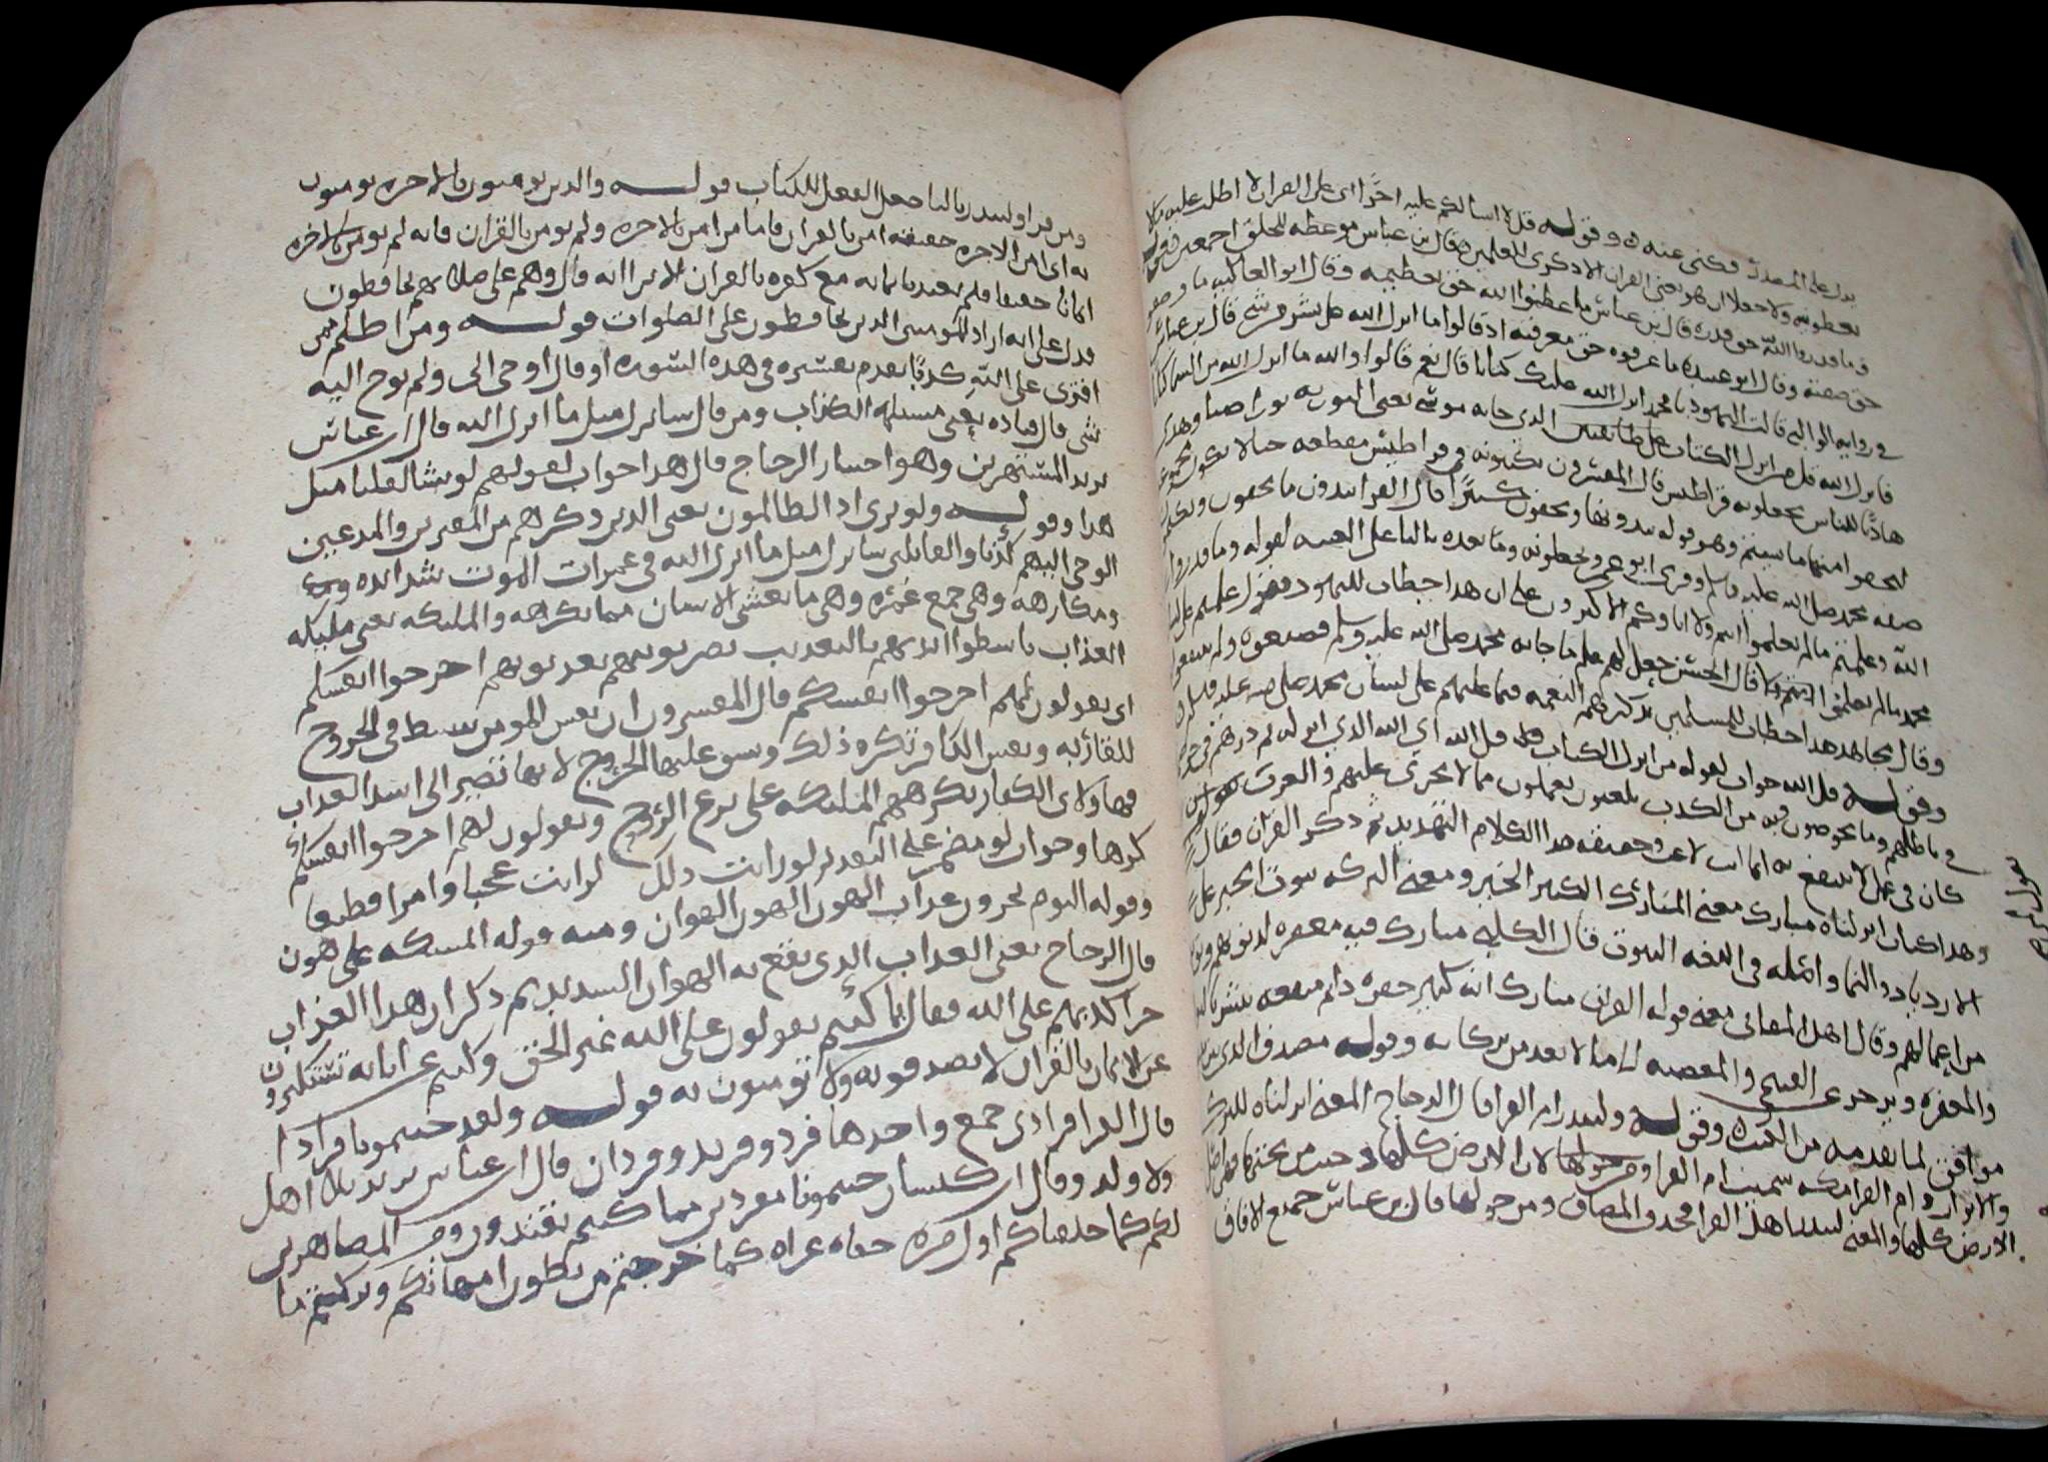 يدل على المصدر فكنى عنه وقوله قل لا اسالكم عليه اجرا اى على القران لا اطلب عليه مالا
تعطونيه ولا جعلا ان هو يعنى القران الا ذكرى للعلمين قال بن عباس موعظه للخلق اجمعين قوله
وما قدروا الله حق قدره قال بن عباس ما عظموا الله حق تعظيمه وقال ابو العاليه ما وصفوه
حق صفته وقال ابو عبيده ما عرفوه حق معرفته اذ قالوا ما انزل الله على بشر من شى قال بن عباس
فى روايه الوالبى قالت اليهود يا محمد انزل الله عليك كتابا قال نعم قالوا والله ما انزل الله من السما كتابا
فانزل الله قل من انزل الكتاب الذى جا به موسى يعنى التوريه نورا ضيا وهدى
هاديا للناس تجعلونه قراطيس قال المفسرون يكتبونه فى قراطيس مقطعه حتى لا تكون مجموعه
ليخفوا منها ما شيتم وهو قوله تبدونها وتخفون كثيرا قال الفرا تبدون ما تحبون وتكتمون
صفه محمد صلى الله عليه وسلم وقرى ابو عمرو يجعلونه وما بعده باليا على الغيبه لقوله وما قدروا
الله وعلمتم ما لم تعلموا انتم ولا اباوكم الاكثرون على ان هذا خطاب لليهود يقول علمتم على لسان
محمد ما لم تعلموا انتم ولا قال الحسن جعل لهم علم ما جا به محمد صلى الله عليه وسلم فضيعوه ولم ينتفعوا
وقال مجاهد هذا خطاب للمسلمين يذكرهم النعمه فيما علمهم على لسان محمد صلى الله عليه وسلم
وقوله قل الله جواب لقوله من انزل الكتاب قل الله اى الله الذى انزله ثم ذرهم فى خوضهم
فى باطلهم وما يخوضون فيه من الكذب يلعبون يعملون ما لا يجزى عليهم والعرب تقول لمن
كان فى عمل لا ينتفع به انما انت لاعب وحقيقه هذا الكلام التهديد ثم ذكر القران فقال
وهذا كتاب انزلناه مبارك معنى المبارك الكثير الخير ومعنى البركه ثبوت الخير على
الازدياد والنما واصله فى اللغه الثبوت قال الكلبى مبارك فيه مغفره لذنوبهم وتوبه
من اعمالهم وقال اهل المعانى معنى قوله القران مبارك انه كثير خيره دائم منفعه يبشر بالثواب
والمغفره ويزجر عن القبيح والمعصيه الى ما لا يعد من بركاته وقوله مصدق الذى بين
موافق لما تقدمه من الكتب وقوله ولتنذر ام القرى قال الزجاج المعنى انزلناه للبركه
والانذار وام القرى مكه سميت ام القرى ومن حولها لان الارض كلها دحيت من تحتها فهى اصل
الارض كلها والمعنى لتنذر اهل القرى فحذف المضاف ومن حولها قال بن عباس جميع الافاق
ومن قرا ولينذر باليا جعل الفعل للكتاب قوله والذين يومنون بالاخره يومنون
به اى امن الاخره حقيقه امن بالقران فاما من امن بالاخره ولم يومن بالقران فانه لم يومن بالاخره
ايمانا حقيقا فلم يعتد بايمانه مع كفره بالقران الا ترا انه قال وهم على صلاتهم يحافظون
فدل على انه اراد المومنين الذين يحافظون على الصلوات قوله ومن اظلم ممن
افترى على الله كذبا تقدم تفسيره فى هذه السوره او قال اوحى الى ولم يوح اليه
شى قال قتاده يعنى مسيلمه الكذاب ومن قال سانزل مثل ما انزل الله قال ابن عباس
يريد المستهزين وهو اختيار الزجاج قال هذا جواب لقولهم لو نشا لقلنا مثل
هذا وقوله ولو ترى اذ الظالمون يعنى الذين ذكرهم من المفترين والمدعين
الوحى اليهم كذبا والقائلين سانزل مثل ما انزل الله فى غمرات الموت شدائده
ومكارهه وهى جمع غمره وهى ما يغشى الانسان مما يكرهه والمليكه يعنى مليكه
العذاب باسطوا ايديهم بالتعذيب يضربونهم يعذبونهم اخرجوا انفسكم
اى يقولون لهم اخرجوا انفسكم قال المفسرون ان نفس المومن تنبسط فى الخروج
للقا ربه ونفس الكافر تكره ذلك ويشق عليها الخروج لانها تصير الى اشد العذاب
فهاولاى الكفار تكرههم المليكه على نزع الروح ويقولون لهم اخرجوا انفسكم
كرها وجواب لو مضمر على التقدير لو رايت ذلك لرايت عجبا وامرا فظيعا
وقوله اليوم تجزون عذاب الهون الهون الهوان ومنه قوله ايمسكه على هون
قال الزجاج يعنى العذاب الذى يقع به الهوان الشديد ثم ذكر ان هذا العذاب
جزا كذبهم على الله فقال بما كنتم تقولون على الله غير الحق وكنتم عن اياته تستكبرون
عن الايمان بالقران لا تصدقونه ولا تومنون به قوله ولقد جيتمونا فرادا
قال الفرا فرادى جمع واحدها فرد وفريد وفردان قال ابن عباس يريد بلا اهل
ولا ولد وقال ابن كيسان جيتمونا مفردين مما كنتم تعبدون ومن المظاهرين
لكم كما خلقناكم اول مره حفاه عراه كما خرجتم من بطون امهاتكم وتركتم ما